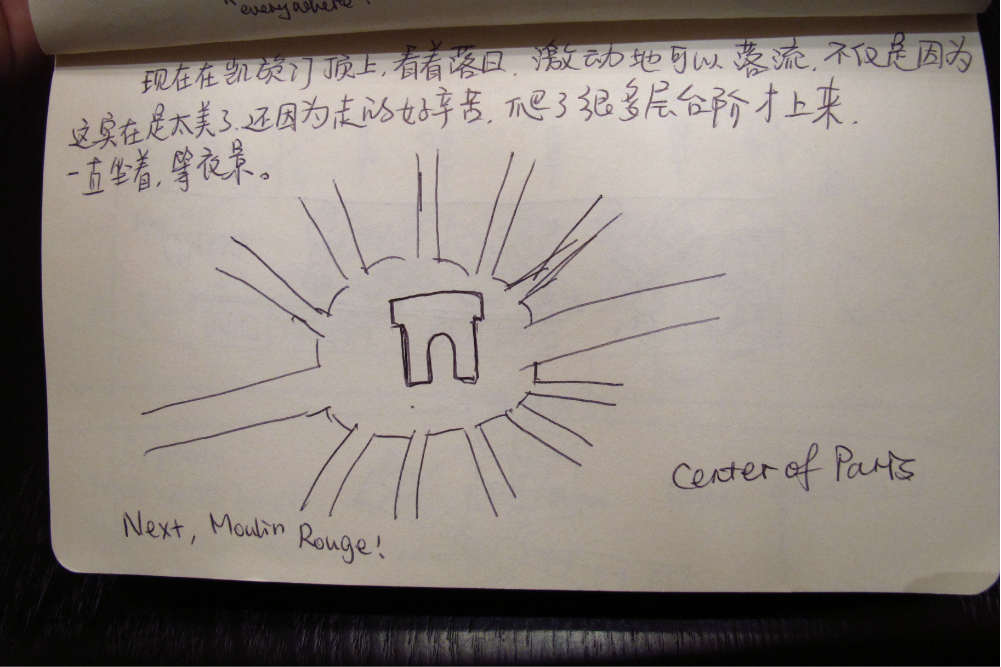 "everywhere!
现在在凯旋门顶上,看着落日,激动地可以落流,不仅是因为
这实在是太美了,还因为走的好辛苦,爬了很多层台阶才上来.
一直坐着,等夜景。
Center of Paris
Next, Moulin Rouge!